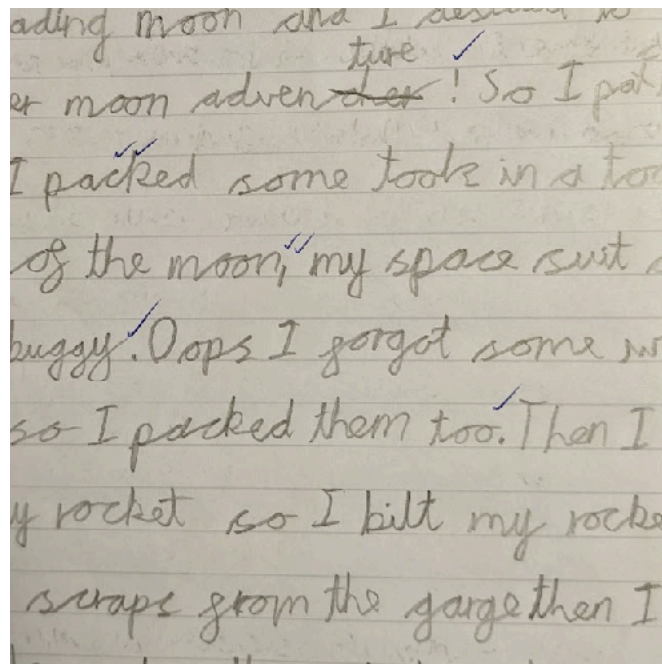 ading moon and I
ture
er moon adven der ! So I pa
I packed some tools in a too
of the moon, my space suit
buggy. Oops I forgot some
so I packed them too. Then I
y rocket so I bilt my rocke
scraps from the garge then I